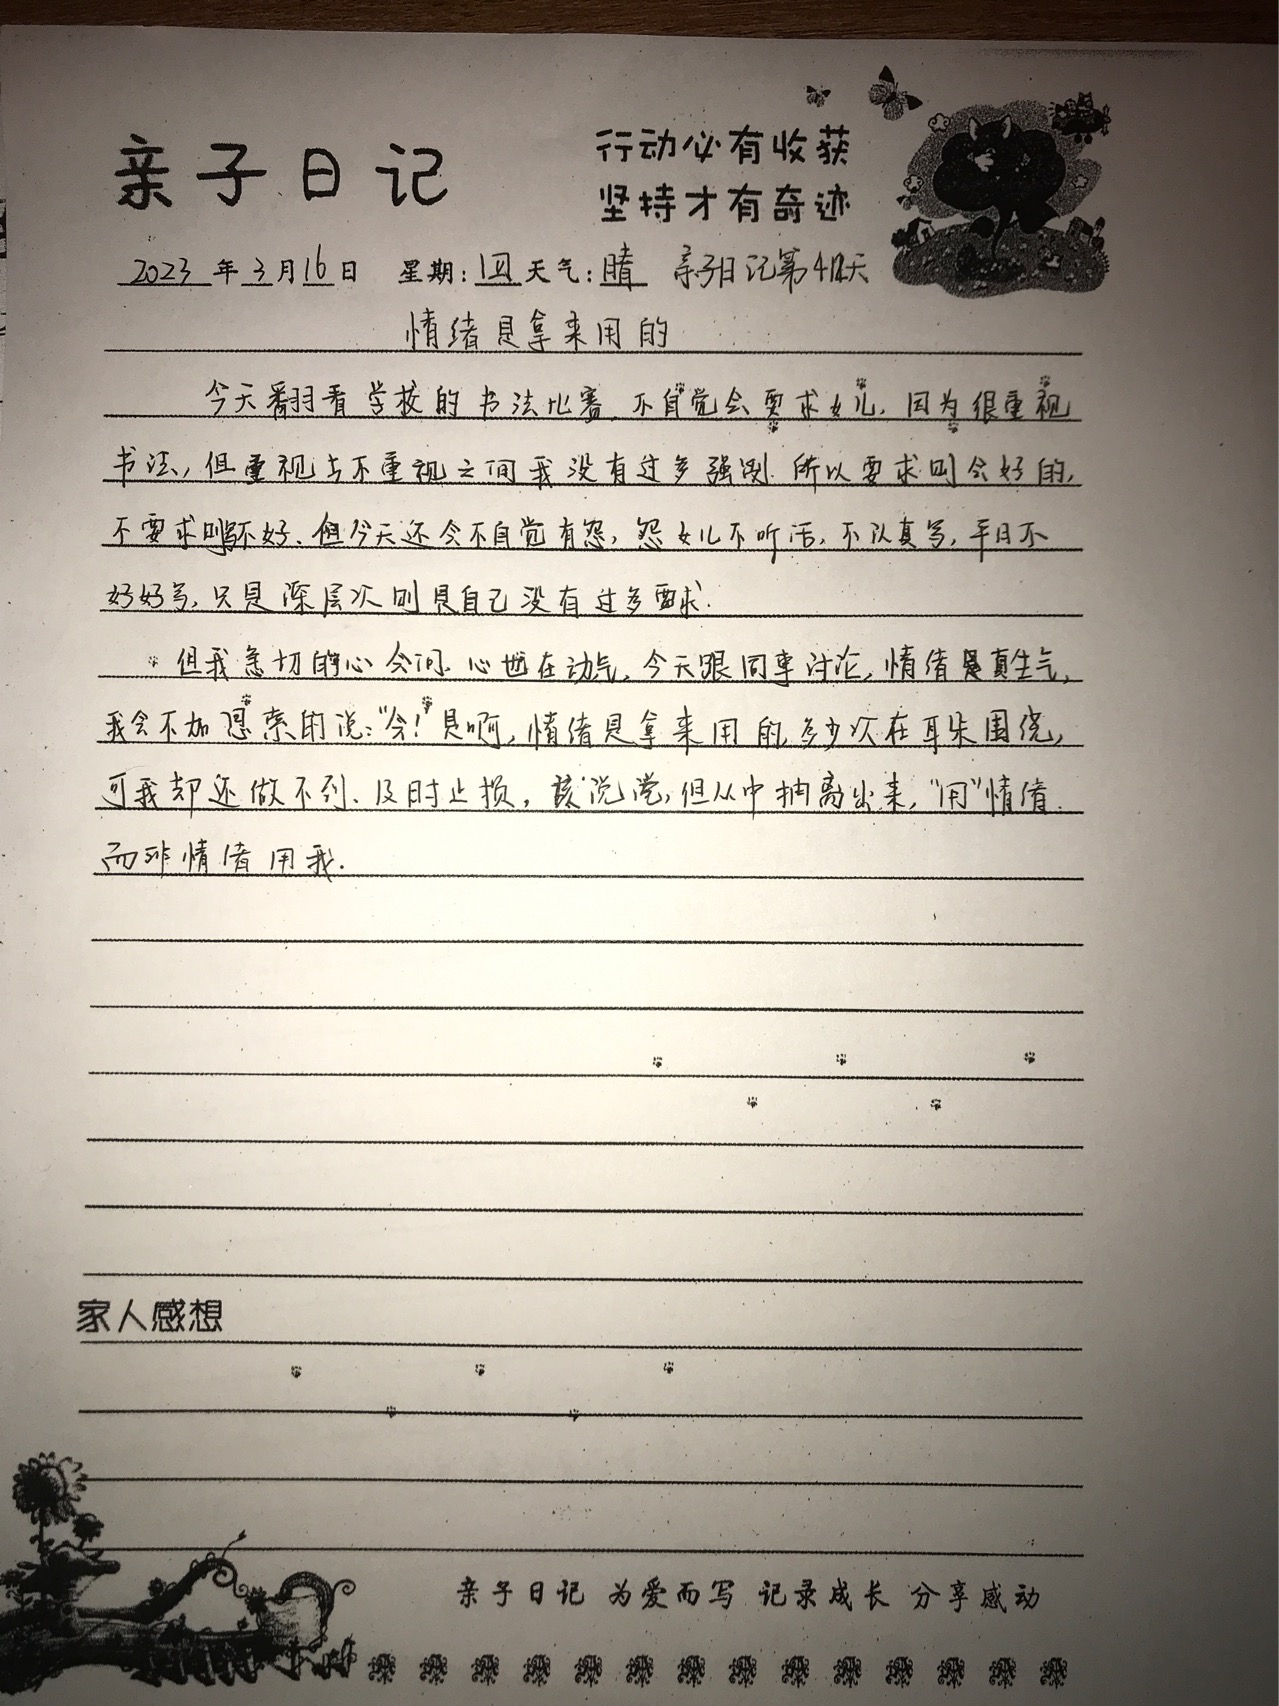 亲子日记
行动必有收获
坚持才有奇迹
2023年3月16日 星期:四 天气:晴 亲子日记第 天
情绪是拿来用的
今天翻看学校的书法比赛,不自觉会要求女儿,因为很重视
书法,但重视与不重视之间我没有过多强调.所以要求则会好的,
不要求则不好、但今天还会不自觉有怨,怨女儿不听话,不认真写,平日不
好好写,只是深层次则是自己没有过多要求.
但我急切的心会问.心也在动气,今天跟同事讨论,情绪是真生气,
我会不加思索的说:"会!"是啊,情绪是拿来用的,多少次在耳朵围绕,
可我却还做不到、及时止损,该说说,但从中抽离出来,"用"情绪.
而非情绪用我.
家人感想
亲子日记 为爱而写 记录成长 分享感动